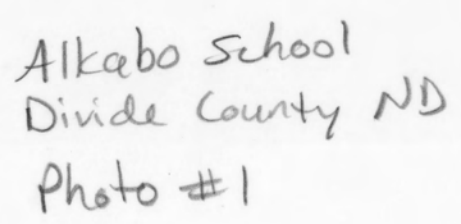 Alkabo School
Divide County ND
Photo #1